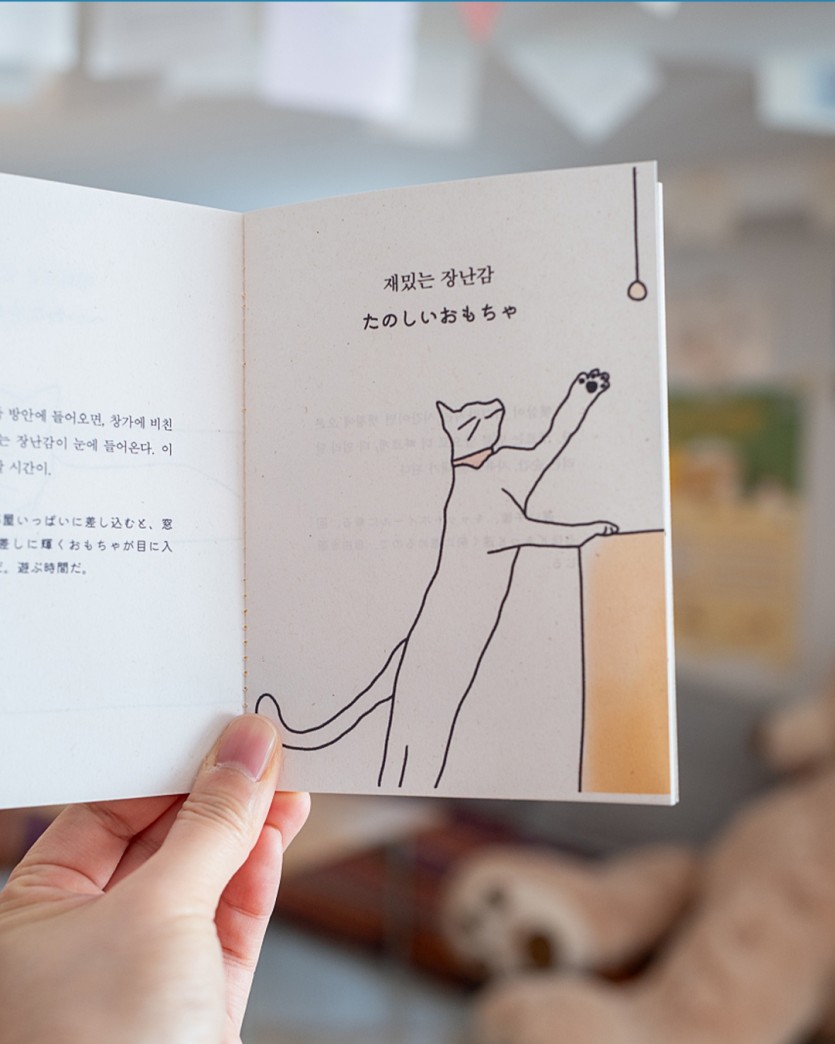 방안에 들어오면, 창가에 비친
는 장난감이 눈에 들어온다. 이
시간이.
屋いっぱいに差し込むと、窓
差しに輝くおもちゃが目に入
。遊ぶ時間だ。
재밌는 장난감
たのしいおもちゃ